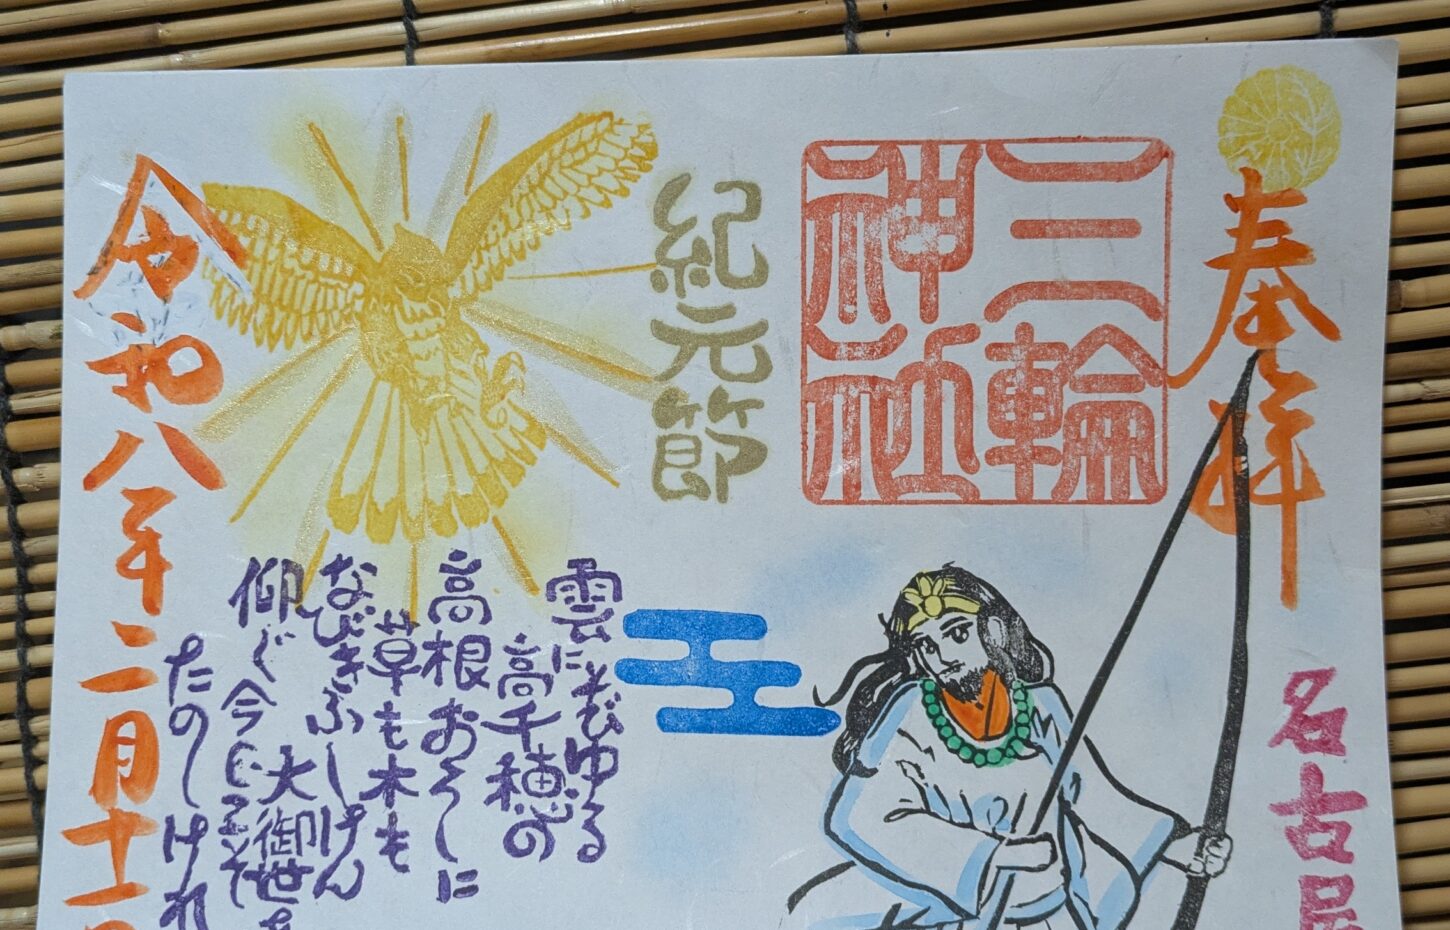 奉拝
三輪
神社
名古屋
紀元節
雲にそびゆる
高千穂の
高根おろしに
草も木も
なびきふしけん
大御世を
仰ぐ今日こそ
たのしけれ
令和八年二月十一日